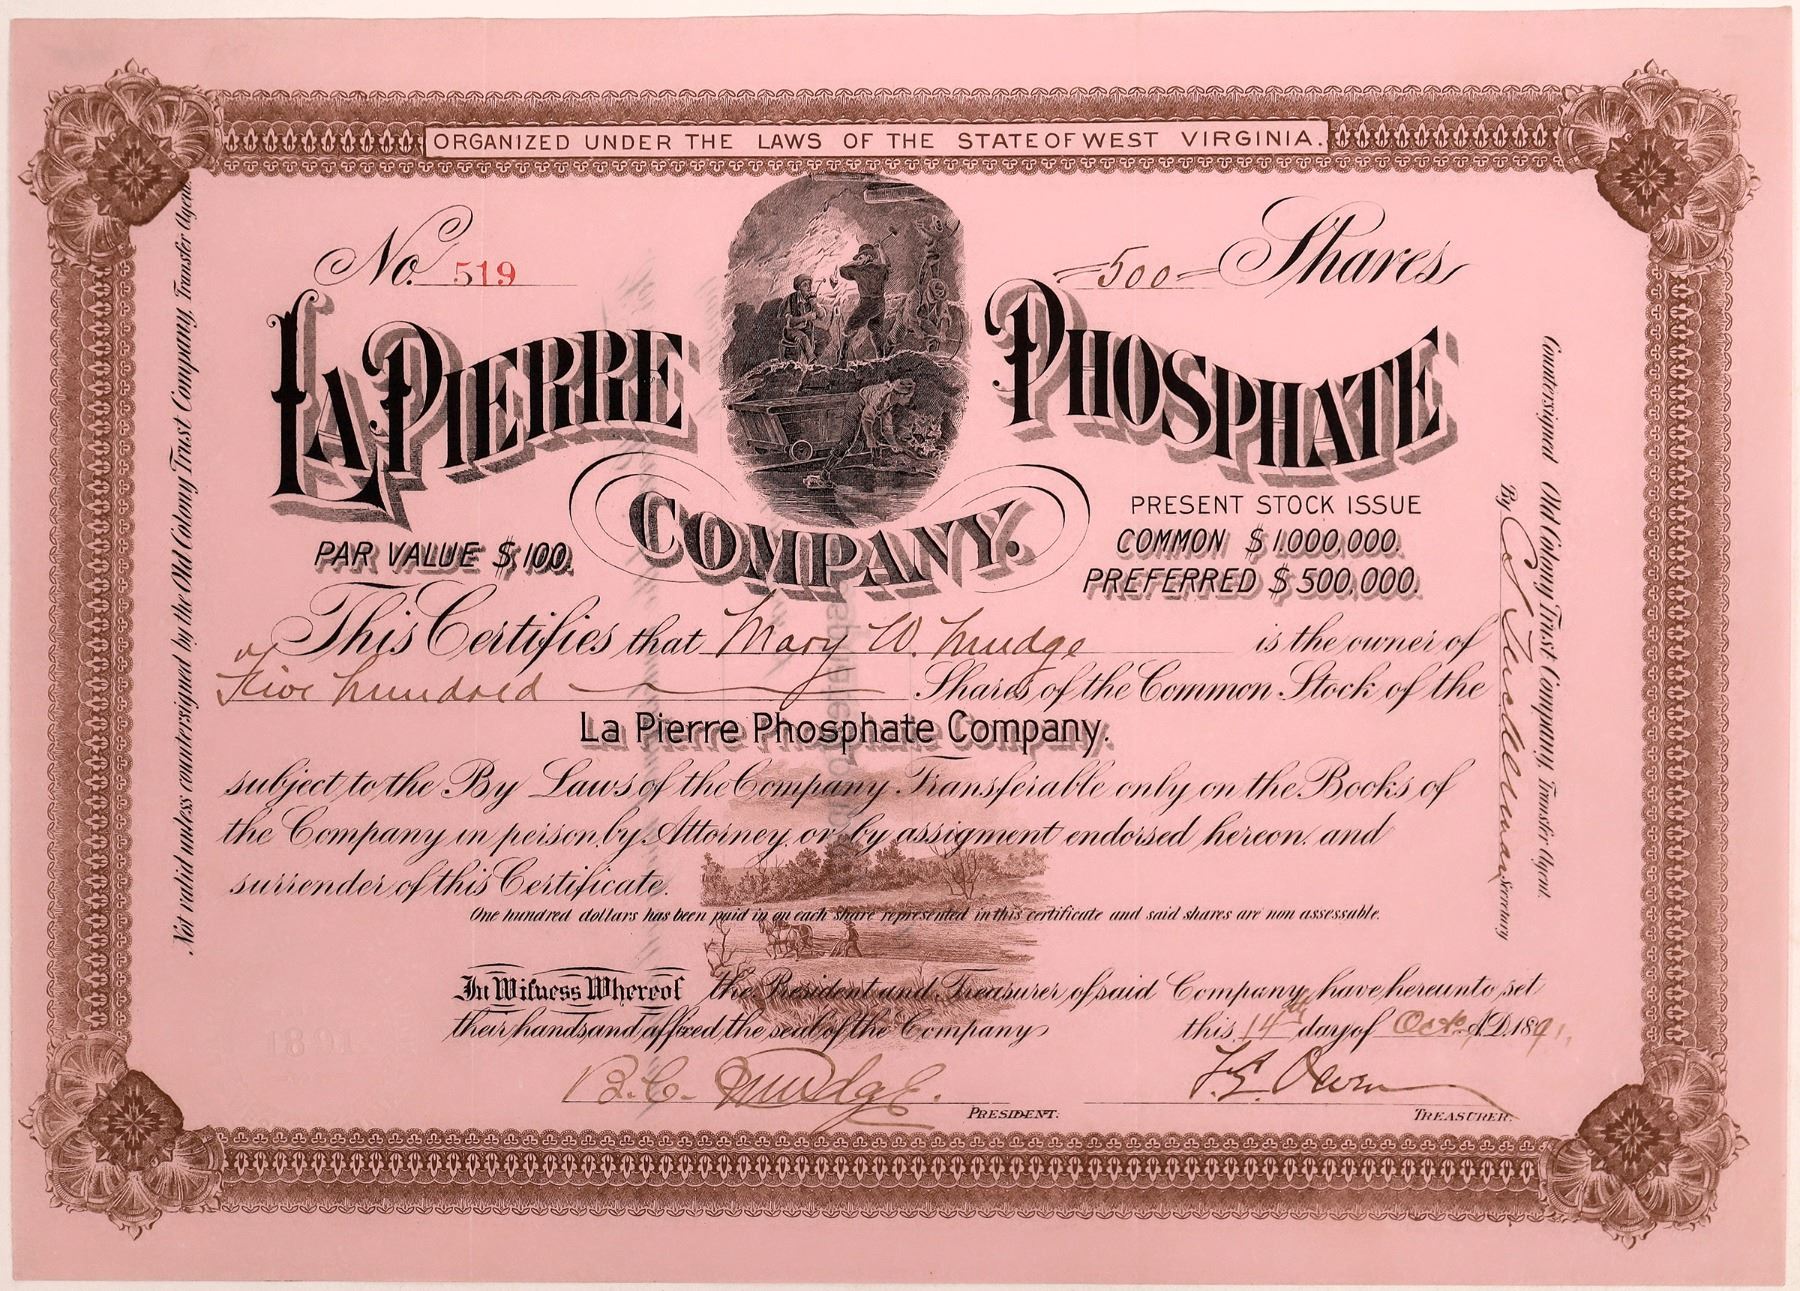 ORGANIZED UNDER THE LAWS OF THE STATE OF WEST VIRGINIA.
No. 519
500 Shares
LA PIERRE PHOSPHATE
COMPANY.
PAR VALUE $100.
PRESENT STOCK ISSUE
COMMON $1.000,000.
PREFERRED $500,000.
This Certifies that Mary W. Mudge is the owner of
Five hundred Shares of the Common Stock of the
La Pierre Phosphate Company.
subject to the By Laws of the Company Transferable only on the Books of
the Company in person, by Attorney, or by assigment endorsed hereon, and
surrender of this Certificate.
One hundred dollars has been paid in on each share represented in this certificate and said shares are non assessable.
In Witness Whereof the President and Treasurer of said Company, have hereunto set
their hands and affixed the seal of the Company
this 14th day of Oct. A.D. 1891.
B. C. Mudge.
PRESIDENT.
F. E. Owen
TREASURER.
Not valid unless countersigned by the Old Colony Trust Company, Transfer Agent.
Countersigned Old Colony Trust Company, Transfer Agent.
By Secretary
1891